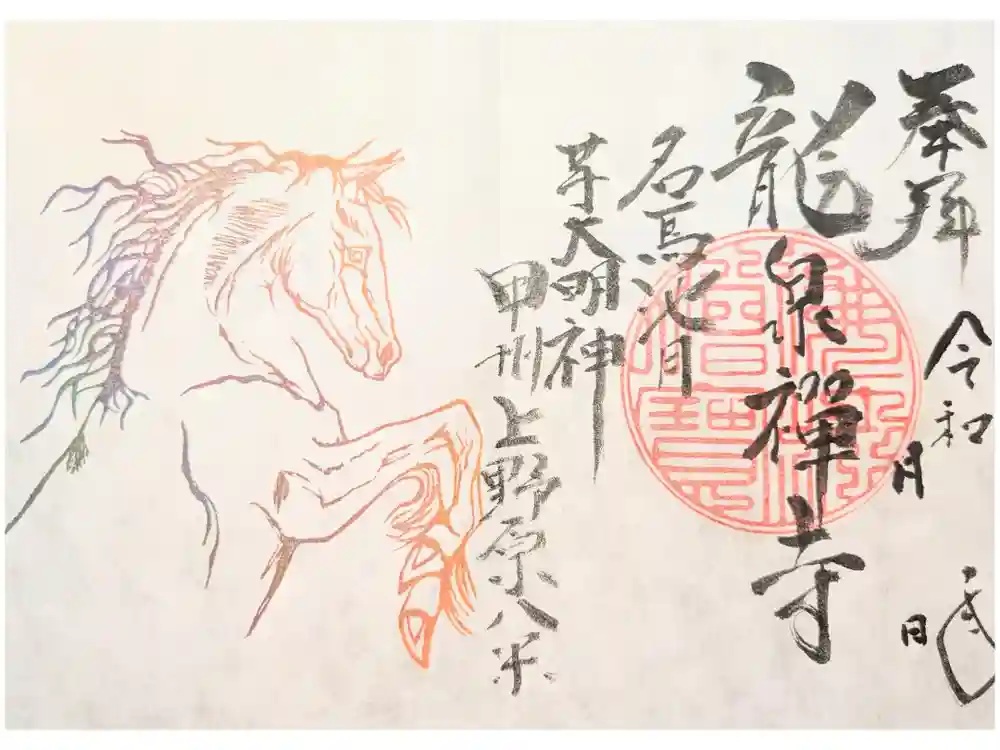 奉拝
令和 月 日
龍泉禅寺
名馬池月
芋大明神
甲州上野原八米